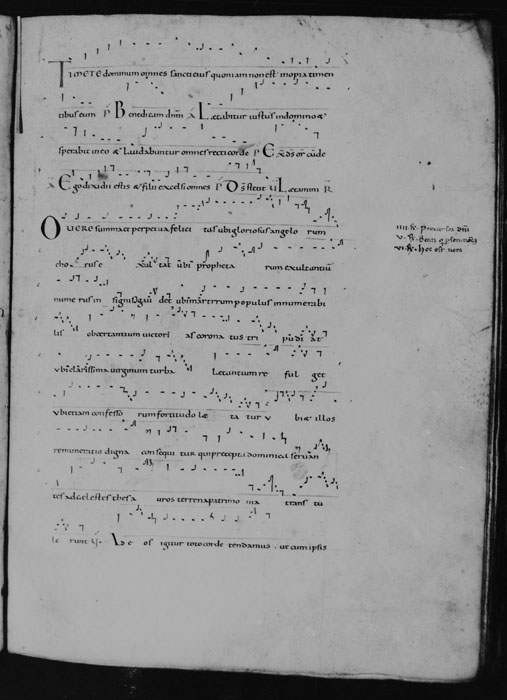 TIMETE dominum omnes sancti eius quoniam non est inopia timen
tibus eum P Benedicam dnm A Laetabitur iustus in domino &
sperabit in eo & laudabuntur omnes recti corde P Exds or cū de
A Ego dixi dii estis & filii excelsi omnes P Ds stetit Laetamini R
O VERE summa et perpetua felicitas ubi gloriosus angelorum
chorus exultat ubi prophetarum exultantium
numerus insignis gau det ubi mártirum populus innumerabi
lis ob certantium victorias coronatus tri pudi at
ubi clarissima virginum turba Letantium reful get
ubi etiam confessorum fortitudo lætatur ubi æ illos
remuneratio digna consequitur qui precepta dominica servan
tes ad celestes thesauros terrena patrimonia trans tu
lerunt Ad eos igitur toto corde tendamus ut cum ipsis